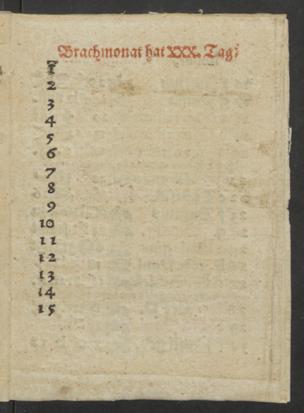 Brachmonat hat XXX. Tag;
1
2
3
4
5
6
7
8
9
10
11
12
13
14
15